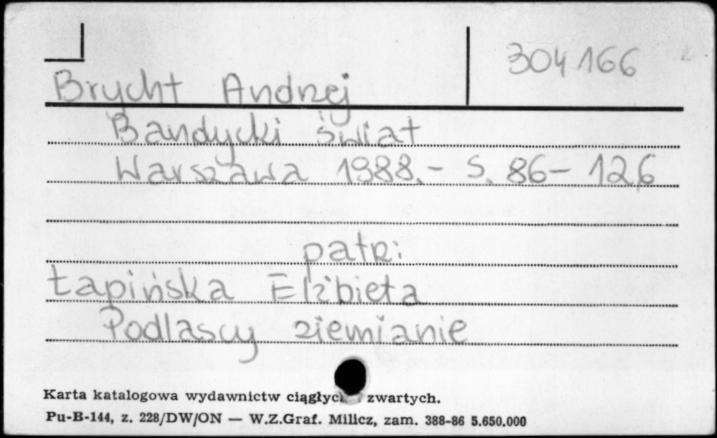 304166
Brycht Andrzej
Bandycki świat
Warszawa 1988.- S. 86-126
patrz:
Łapińska Elżbieta
Podlascy ziemianie
Karta katalogowa wydawnictw ciągłych zwartych.
Pu-B-144, z. 228/DW/ON — W.Z.Graf. Milicz, zam. 388-86 5.650.000